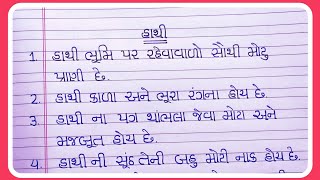 હાથી
1. હાથી ભુમિ પર રહેવાવાળો સૌથી મોટુ
પ્રાણી છે.
2. હાથી કાળા અને ભુરા રંગના હોય છે.
3. હાથી ના પગ થાંભલા જેવા મોટા અને
મજબુત હોય છે.
4. હાથી ની સૂંઢ તેની બહુ મોટી નાક હોય છે.